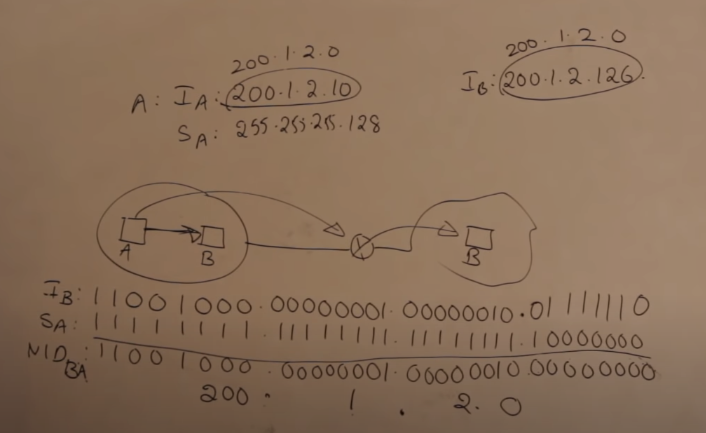 200.1.2.0
A: I_A: 200.1.2.10
S_A: 255.255.255.128
200.1.2.0
I_B: 200.1.2.126.
A B B
I_B: 11001000.00000001.00000010.01111110
S_A: 11111111.11111111.11111111.10000000
NID_BA: 11001000.00000001.00000010.00000000
200. 1 . 2. 0